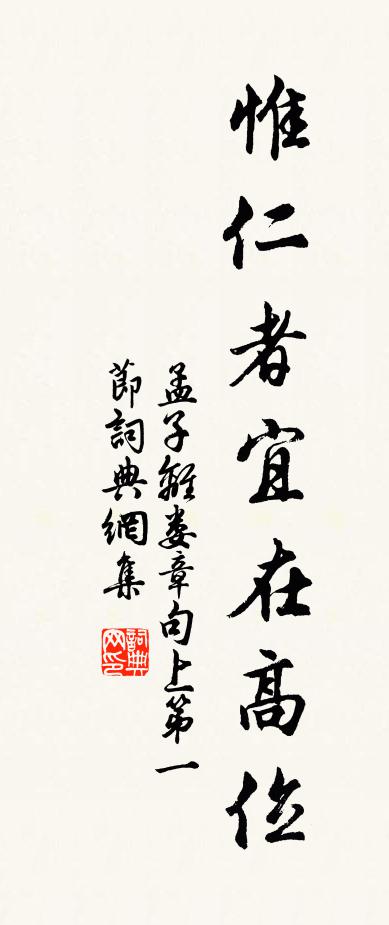 惟仁者宜在高位
孟子離娄章句上第一
節詞典網集
詞典
网印